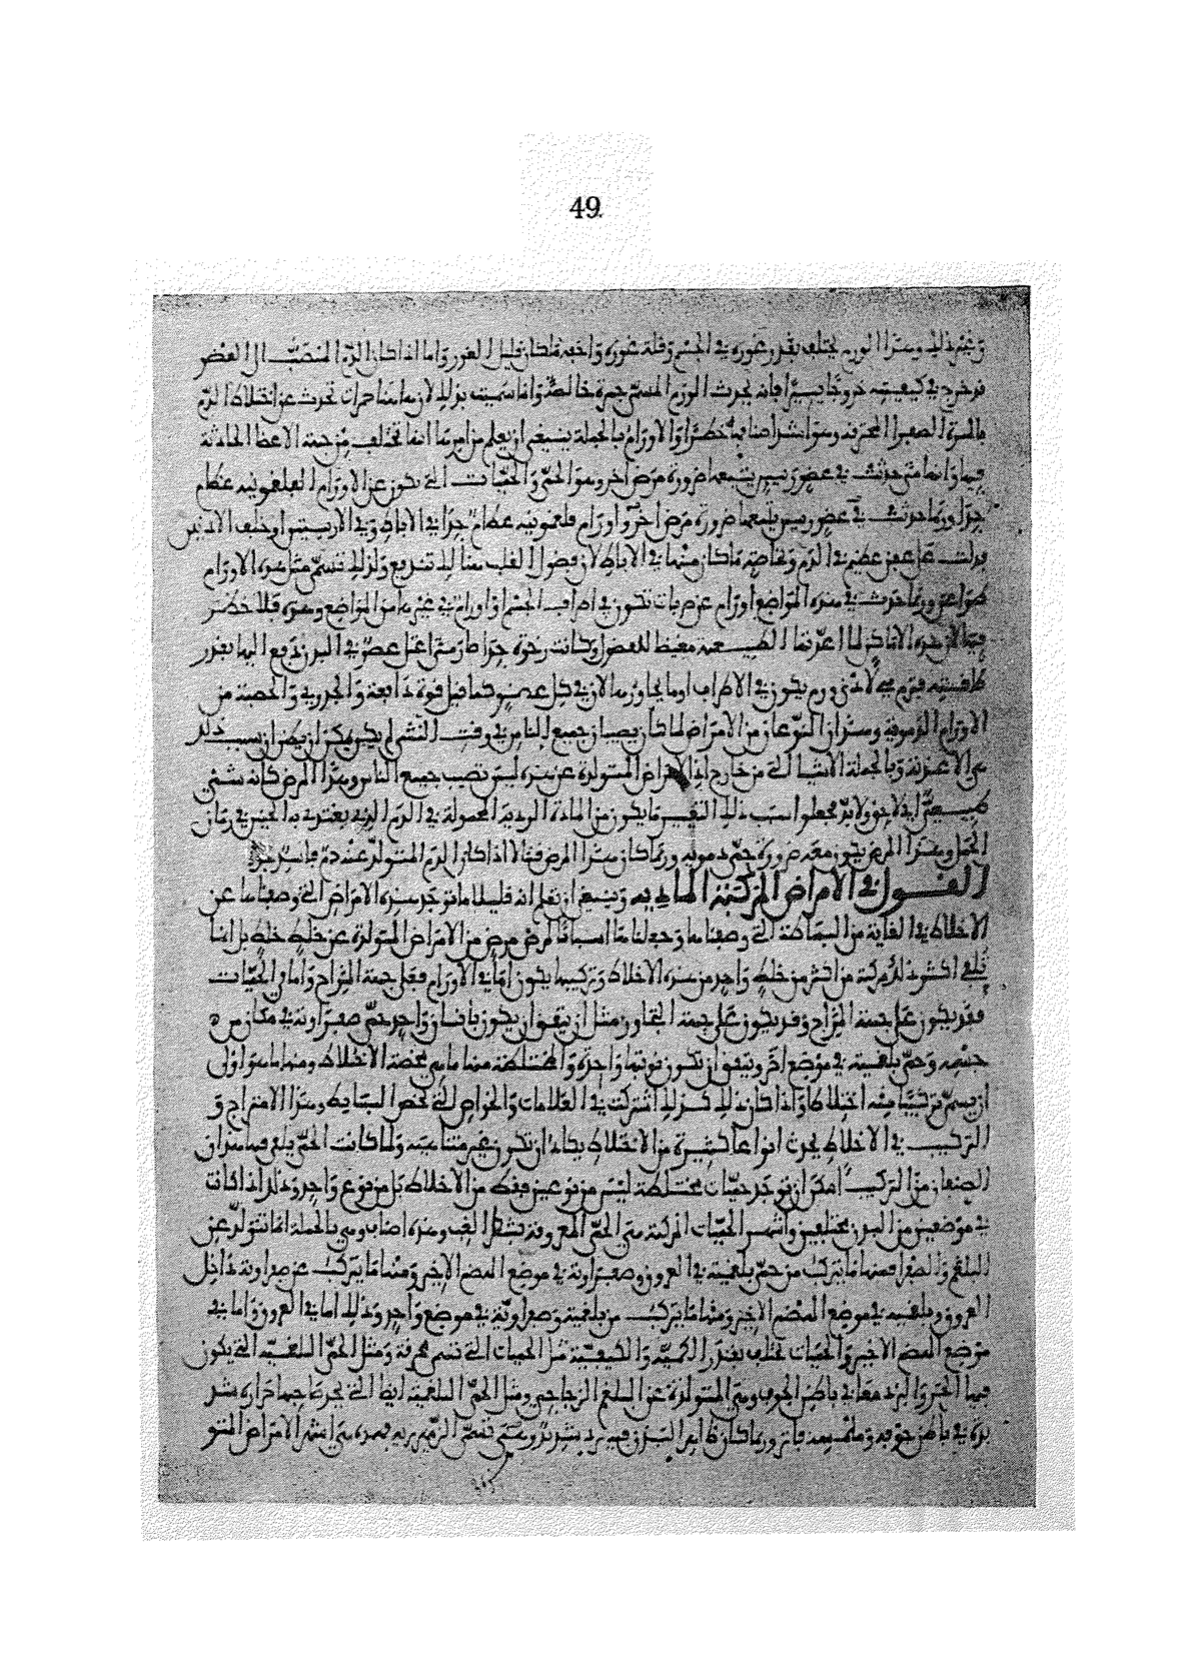 49
وغير ذلك وهذا الورم يختلف بقدر غوره في الجسم وقلة غوره وأخفه ما كان قليل الغور وأما اذا كان الدم المنصب الى العضو
قد خرج في كيفيته خروجا يسيرا فإنه يحدث الورم المسمى حمرة خالصة وانما سميت بذلك لان هاهنا حمرات تحدث عن اختلاط الدم
بالمرة الصفرا المحترقة وهو اشر اصنافها خطرا والاورام بالجملة ينبغي ان يعلم من امرها انها تختلف من جهة الاعضا الحادثة
فيها وانها متى حدثت في عضو رييس يتبعها ضرورة مرض اخر وهو الحمى والحميات التي تكون عن الاورام الفلغمونية عظام
جدا وربما حدث في عضو رييس يتبعها ضرورة مرض اخر واورام فلغمونية عظام جدا في الاباط وفي الاربيتين او خلف الاذنين
فدلت على عفن عظيم في الدم وبخاصة ما كان منها في الاباط لان فضول القلب هنالك تندفع ولذلك تسمى مثل هذه الاورام
طواعن وربما حدث في هذه المواضع اورام عن ضربات تكون في اطراف الجسم او اورام في غيرها من المواضع وهذه فلا خطر
فيها لان هذه الاماكن لما اعدتها الطبيعة مغيضا للفضول وكانت رخوة جدا صار متى اعتل عضو في البدن تدفع اليها بقدر
طاقتها فترم لادنى ورم يكون في الاطراف او ما يجاورها لان في كل عضو كما قيل قوة دافعة والجدري والحصبة من
الاورام الدموية وهذان النوعان من الامراض لما كان يصيبان جميع الناس في وقت النشء لم يكن يمكن ان يظن ان سبب ذلك
هي الاغذية وبالجملة الاشيا التي من خارج اذ الامراض المتولدة عن هذه ليس تصيب جميع الناس وهذا المرض كانه شيء
طبيعي اذ لا بد جعلوا سبب ذلك التغير ما يكون من المادة الردية المحمولة في الدم الذي يغتذي به الجنين في زمان
الحمل وهذا المرض يكون معه ضرورة حمى دموية وربما كان هذا المرض قتالا اذا كان الدم المتولد عنه دم فاسد جدا
القول في الامراض المركبة المادية وينبغي ان تعلم انه قليلا ما توجد هذه الامراض التي وصفناها عن
الاخلاط في الغاية من البساطة التي وصفنا وجعلناها اسبابا لمرض مرض من الامراض المتولدة عن خلط خلط بل انما
تلفى اكثر ذلك مركبة من اكثر من خلط واحد من هذه الاخلاط وتركيبها يكون اما في الاورام فعلى جهة المزاج واما في الحميات
فقد يكون على جهة المزاج وقد يكون على جهة التجاور مثل ان يتفق ان يكون بانسان واحد حمى صفراوية في مكان من
جسمه وحمى بلغمية في موضع اخر ويتفق ان تكون نوبتها واحدة والمختلطة منها ما يخصه الاختلاط ومنها ما هو اولى
ان يسمى تركيبا منه اختلاطا واذا كان ذلك كذلك اشتركت في العلامات والخواص التي تخص البسايط وهذا الامتزاج و
التركيب في الاخلاط يحدث انواعا كثيرة من الاختلاط يكاد ان تكون غير متناهية ولما كانت الحمى يلفى فيها هذان
الصنفان من التركيب امكن ان توجد حميات مختلطة ليس من نوعين فقط من الاخلاط بل من نوع واحد وذلك اذا كانت
في موضعين من البدن مختلفين واشهر الحميات المركبة هي الحمى المعروفة بشطر الغب وهذه اصناف وهي بالجملة انما تتولد عن
البلغم والصفرا فمنها ما يتركب من حمى بلغمية في العروق وصفراوية في موضع الهضم الاخير ومنها ما يتركب عن صفراوية داخل
العروق وبلغمية في موضع الهضم الاخير ومنها ما يتركب من بلغمية وصفراوية في موضع واحد وذلك اما في العروق واما في
موضع الهضم الاخير والحميات تختلف بقدر الكمية والكيفية مثل الحميات التي تسمى محرقة ومثل الحمى البلغمية التي يكون
فيها الحر والبرد معا في باطن الجوف وهي المتولدة عن البلغم الزجاجي ومثل الحمى البلغمية ايضا التي يجد صاحبها حرارة شد
يدة في باطن جوفه وملمسه بارد وربما كان ظاهر البدن فيه برد شديد وهي تسمى الزمهريرية فهذه هي اشهر الامراض المتو